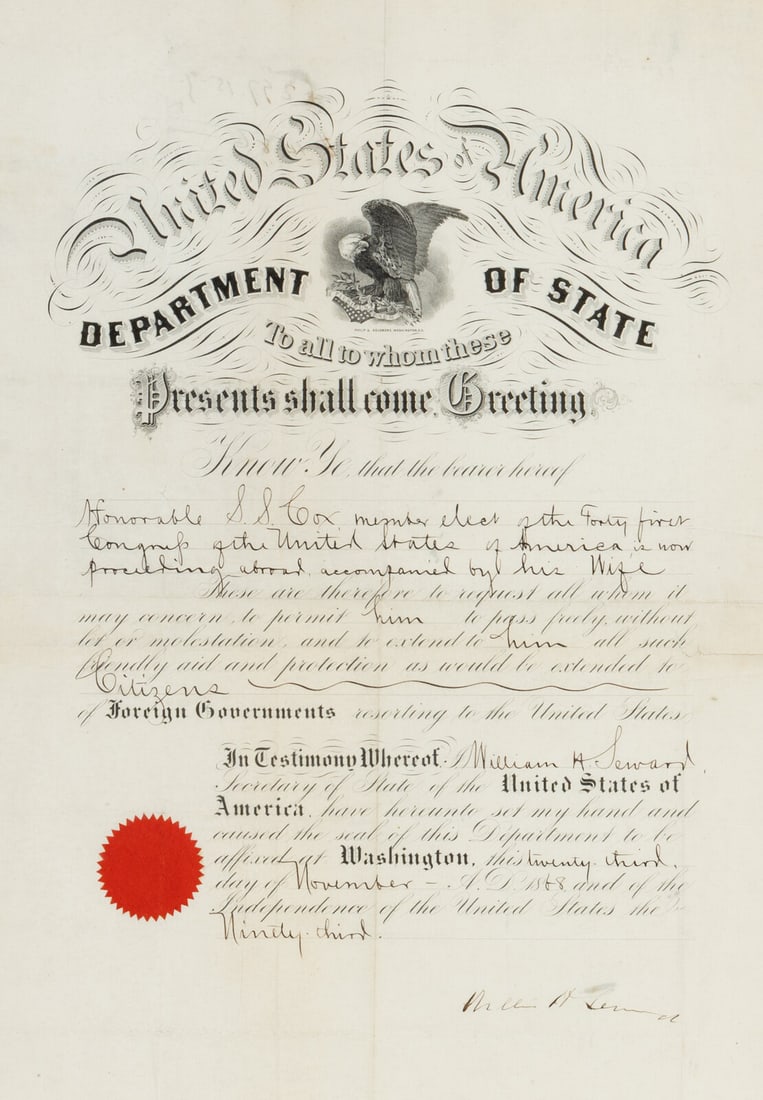 United States of America
DEPARTMENT OF STATE
To all to whom these
Presents shall come, Greeting.
Know Ye, that the bearer hereof
Honorable S. S. Cox, member elect of the Forty first
Congress of the United States of America, is now
proceeding abroad, accompanied by his Wife
These are therefore to request all whom it
may concern, to permit him to pass freely, without
let or molestation, and to extend to him all such
friendly aid and protection as would be extended to
Citizens
of Foreign Governments resorting to the United States
In Testimony Whereof, I William H. Seward,
Secretary of State of the United States of
America, have hereunto set my hand and
caused the seal of this Department to be
affixed at Washington, this twenty-third,
day of November - A.D. 1868 and of the
Independence of the United States the
Ninety-third.
William H Seward